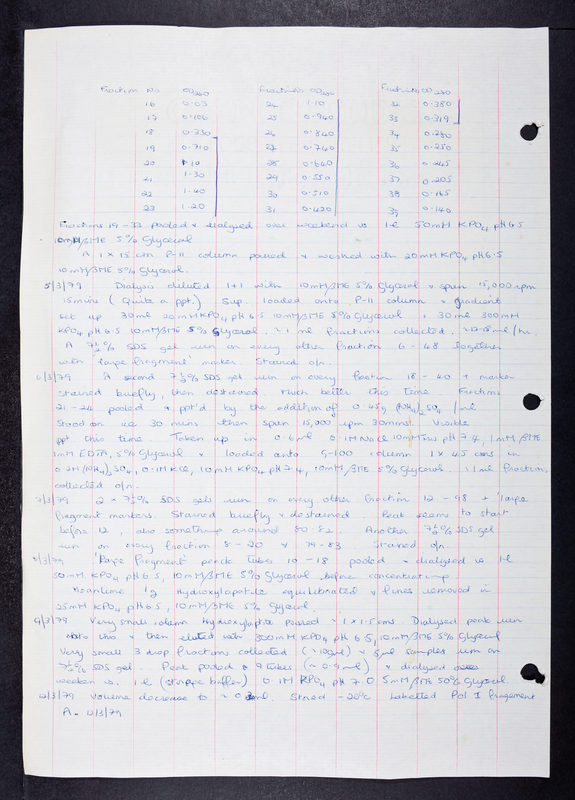 Fraction No OD280 Fraction No OD280 Fraction No OD280
16 0.03 24 1.10 32 0.380
17 0.106 25 0.940 33 0.319
18 0.330 26 0.840 34 0.280
19 0.710 27 0.740 35 0.250
20 1.10 28 0.640 36 0.245
21 1.30 29 0.550 37 0.205
22 1.40 30 0.510 38 0.165
23 1.20 31 0.420 39 0.140
Fractions 19-33 pooled & dialysed over weekend vs 1l 50mM KPO4 pH 6.5
10mM βME 5% Glycerol
A 1 x 15 cm P-11 column poured & washed with 20mM KPO4 pH 6.5
10mM βME 5% Glycerol.
5/3/79 Dialysis diluted 1+1 with 10mM βME 5% Glycerol & span 15,000 rpm
15mins (Quite a ppt.) Sup. loaded onto P-11 column & gradient
set up 30ml 20mM KPO4 pH 6.5 10mM βME 5% Glycerol + 30ml 300mM
KPO4 pH 6.5 10mM βME 5% Glycerol. ~1ml fractions collected. ml/hr.
A 7½% SDS gel run on every other fraction 6-48 together
with 'large fragment' marker. Stained o/n.
6/3/79 A second 7½% SDS gel run on every fraction 18-40 + marker
stained briefly, then destained. Much better this time. Fractions
21-24 pooled & ppt'd by the addition of 0.45g (NH4)2SO4 /ml
Stood on ice 30 mins then span 15,000 rpm 30mins. Visible
ppt this time. Taken up in 0.6ml 0.1M NaCl 10mM Tris pH 7.4, 1mM βME
1mM EDTA, 5% Glycerol & loaded onto G-100 column 1 x 45 cms in
0.2M (NH4)2SO4, 0.1M KCl, 10mM KPO4 pH 7.4, 10mM βME 5% Glycerol. 1ml fractions
collected o/n.
7/3/79 2 x 7½% SDS gels run on every other fraction 12-98 + 'large
fragment markers. Stained briefly & destained. Peak seems to start
before 12, also something around 80-82. Another 7½% SDS gel
run on every fraction 8-20 & 79-83. Stained o/n.
8/3/79 'Large fragment' peak tubes 10-18 pooled & dialysed vs 1l
50mM KPO4 pH 6.5, 10mM βME 5% Glycerol before concentrating
Meantime Hydroxylapatite equilibrated & fines removed in
25mM KPO4 6.5, 10mM βME 5% Glycerol.
9/3/79 Very small column Hydroxylapatite poured ~1 x 1.5 cms. Dialysed peak run
into this & then eluted with 300mM KPO4 pH 6.5, 10mM βME 5% Glycerol
Very small 3 drop fractions collected & 5µl samples run on
7½% SDS gel. Peak pooled 9 tubes (~0.9ml) & dialysed over
weekend vs. 1l (storage buffer) 0.1M KPO4 pH 7.0 5mM βME 50% Glycerol.
12/3/79 Volume decrease to ml. Stored -20°C. Labelled Pol I fragment
A. 12/3/79